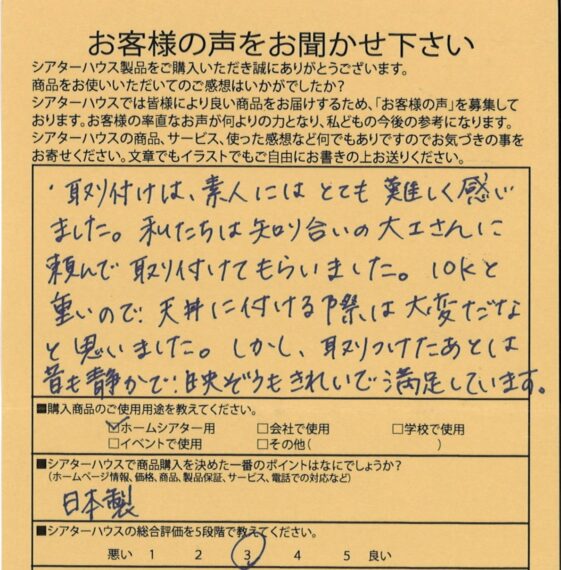 お客様の声をお聞かせ下さい
シアターハウス製品をご購入いただき誠にありがとうございます。
商品をお使いいただいてのご感想はいかがでしたか?
シアターハウスでは皆様により良い商品をお届けするため、「お客様の声」を募集して
おります。お客様の率直なお声が何よりの力となり、私どもの今後の参考になります。
シアターハウスの商品、サービス、使った感想など何でもありですのでお気づきの事を
お寄せください。文章でもイラストでもご自由にお書きの上お送りください。
・取り付けは、素人にはとても難しく感じ
ました。私たちは知り合いの大工さんに
頼んで取り付けてもらいました。10Kと
重いので、天井に付ける際は大変だな
と思いました。しかし、取りつけたあとは
音も静かで、映ぞうもきれいで満足しています。
■購入商品のご使用用途を教えてください。
☑ホームシアター用 □会社で使用 □学校で使用
□イベントで使用 □その他( )
■シアターハウスで商品購入を決めた一番のポイントはなにでしょうか?
(ホームページ情報、価格、商品、製品保証、サービス、電話での対応など)
日本製
■シアターハウスの総合評価を5段階で教えてください。
悪い 1 2 3 4 5 良い